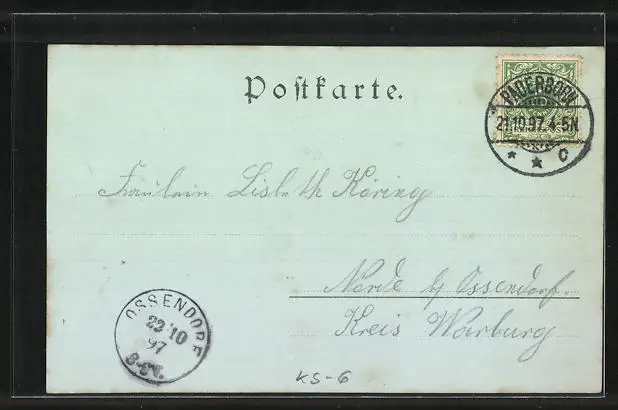 Postkarte.
PADERBORN
21.10.97.4-5N
* * c
Fräulein Lisbeth Köring
Nörde b/ Ossendorf.
Kreis Warburg
OSSENDORF
22/10
97
KS-6